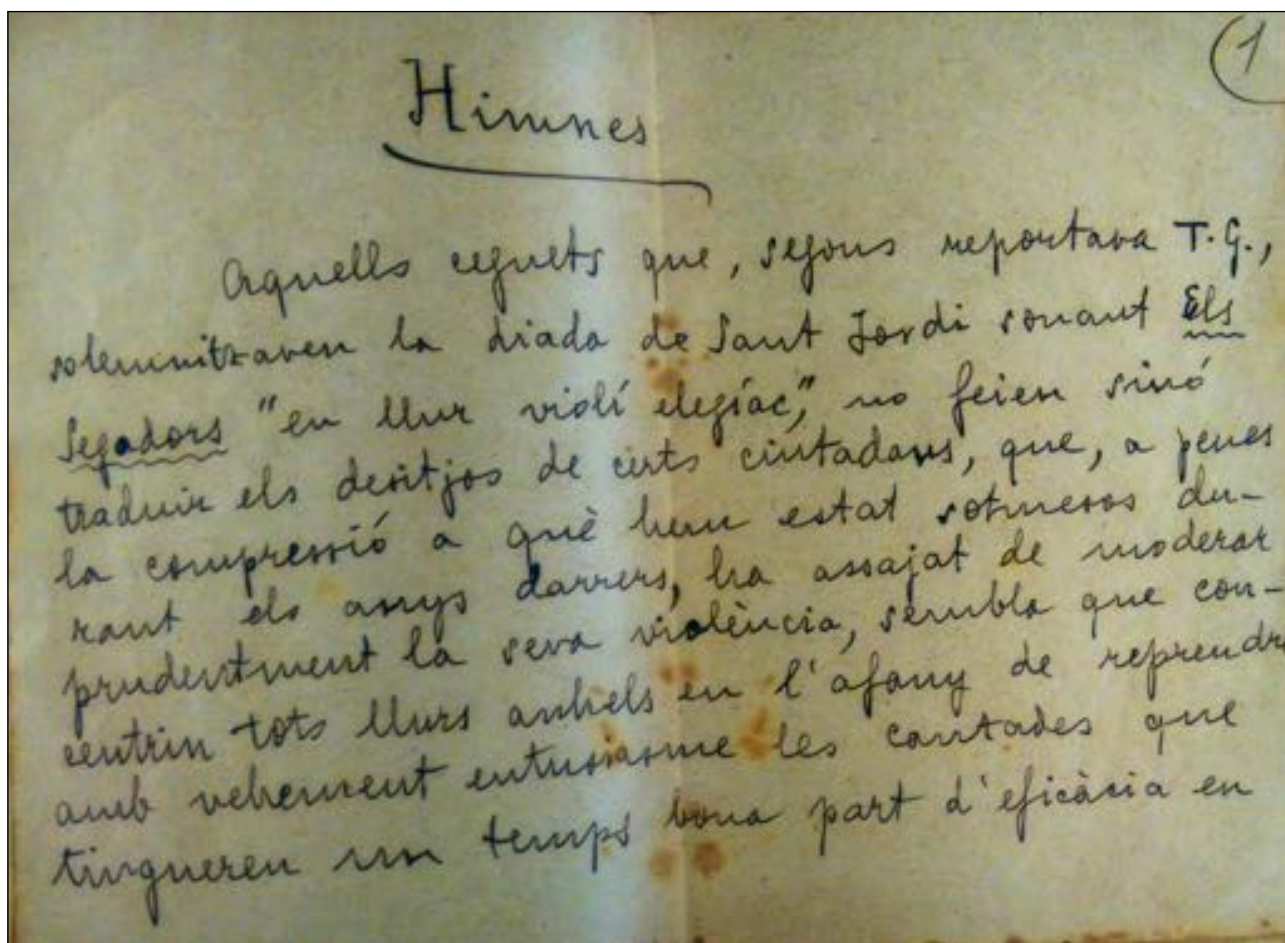 1
Himnes
Aquells ceguets que, segons reportava T.G.,
solemnitzaven la diada de Sant Jordi sonant Els
Segadors "en llur violí elegíac," no feien sinó
traduir els desitjos de certs ciutadans, que, a penes
la compressió a què hem estat sotmesos du-
rant els anys darrers, ha assajat de moderar
prudentment la seva violència, sembla que con-
centrin tots llurs anhels en l'afany de reprendre
amb vehement entusiasme les cantades que
tingueren un temps bona part d'eficàcia en